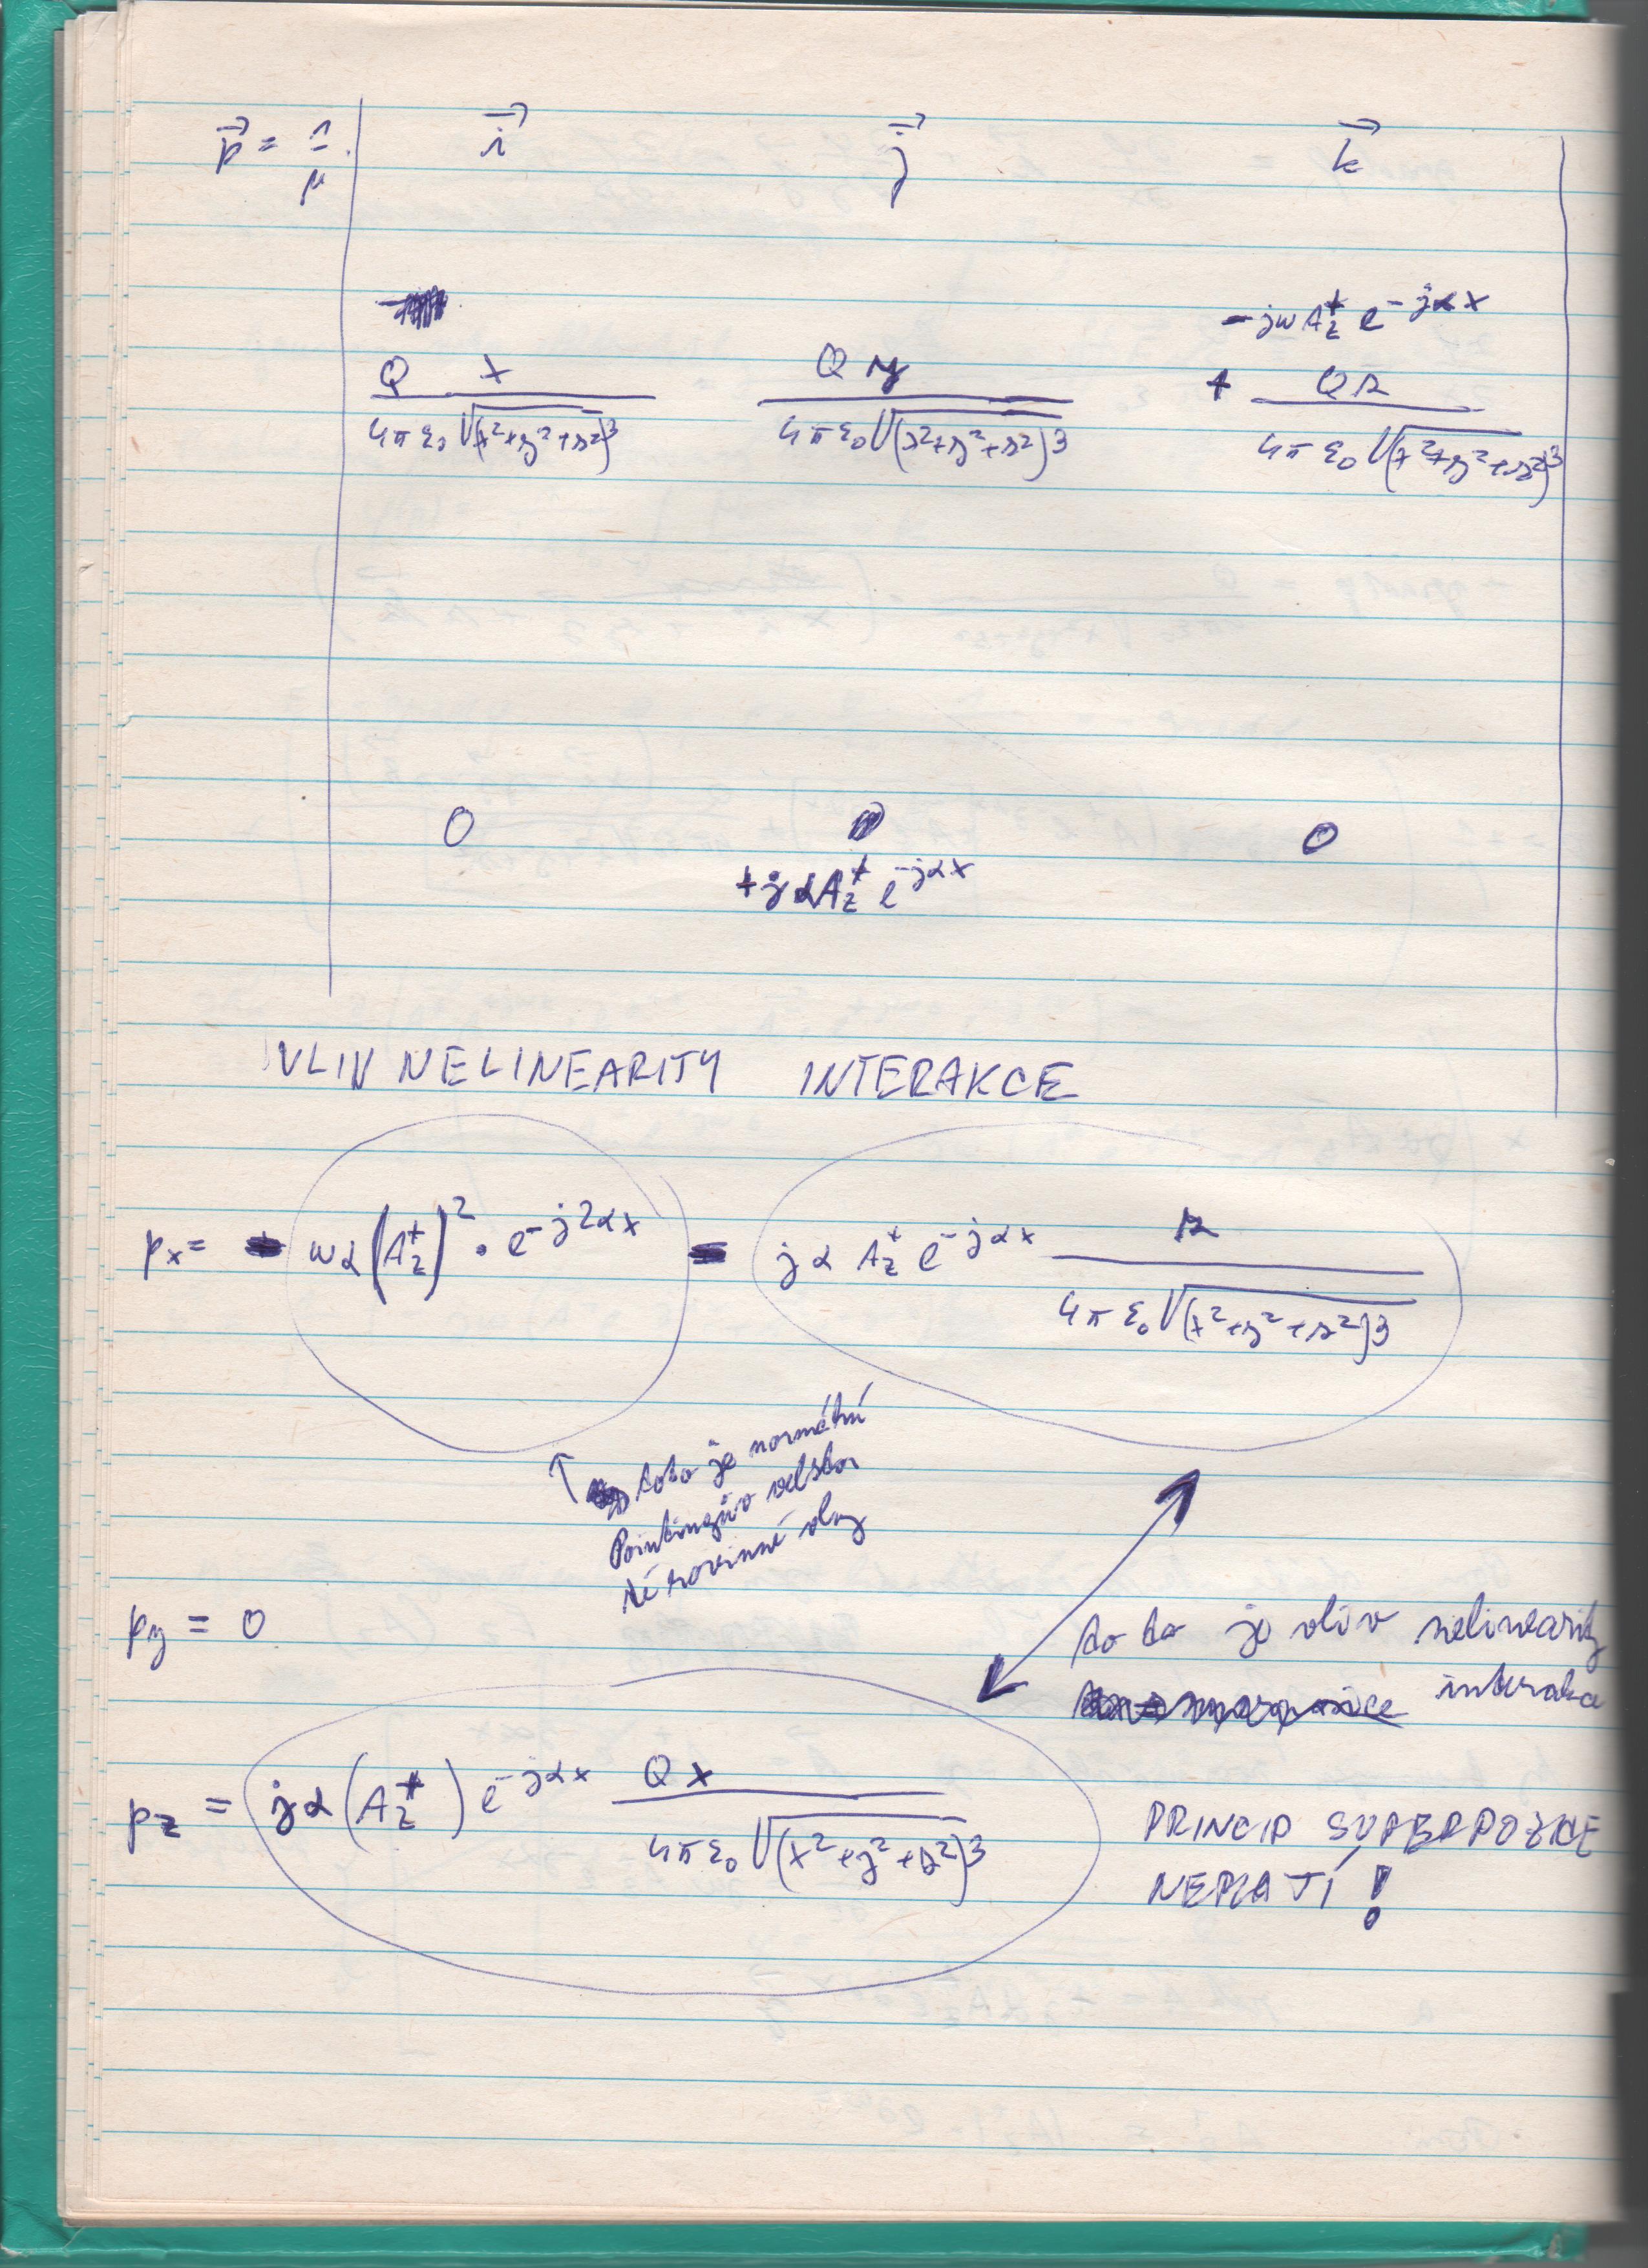 p⃗ = 1/μ · | i⃗ j⃗ k⃗ |
-jωA_z^+ e^{-jαx}
Q x / 4πε₀√(x²+y²+z²)³   Q y / 4πε₀√(x²+y²+z²)³   + Q z / 4πε₀√(x²+y²+z²)³
0   0
+jαA_z^+ e^{-jαx}
VLIV NELINEARITY INTERAKCE
p_x = - ωα(A_z^+)² · e^{-j2αx} - jα A_z^+ e^{-jαx} z / 4πε₀√(x²+y²+z²)³
↑ toto je normální
Pointingův vektor
té rovinné vlny
p_y = 0
toto je vliv nelinearity
interakce
p_z = jα(A_z^+) e^{-jαx} Q x / 4πε₀√(x²+y²+z²)³
PRINCIP SUPERPOZICE
NEPLATÍ!